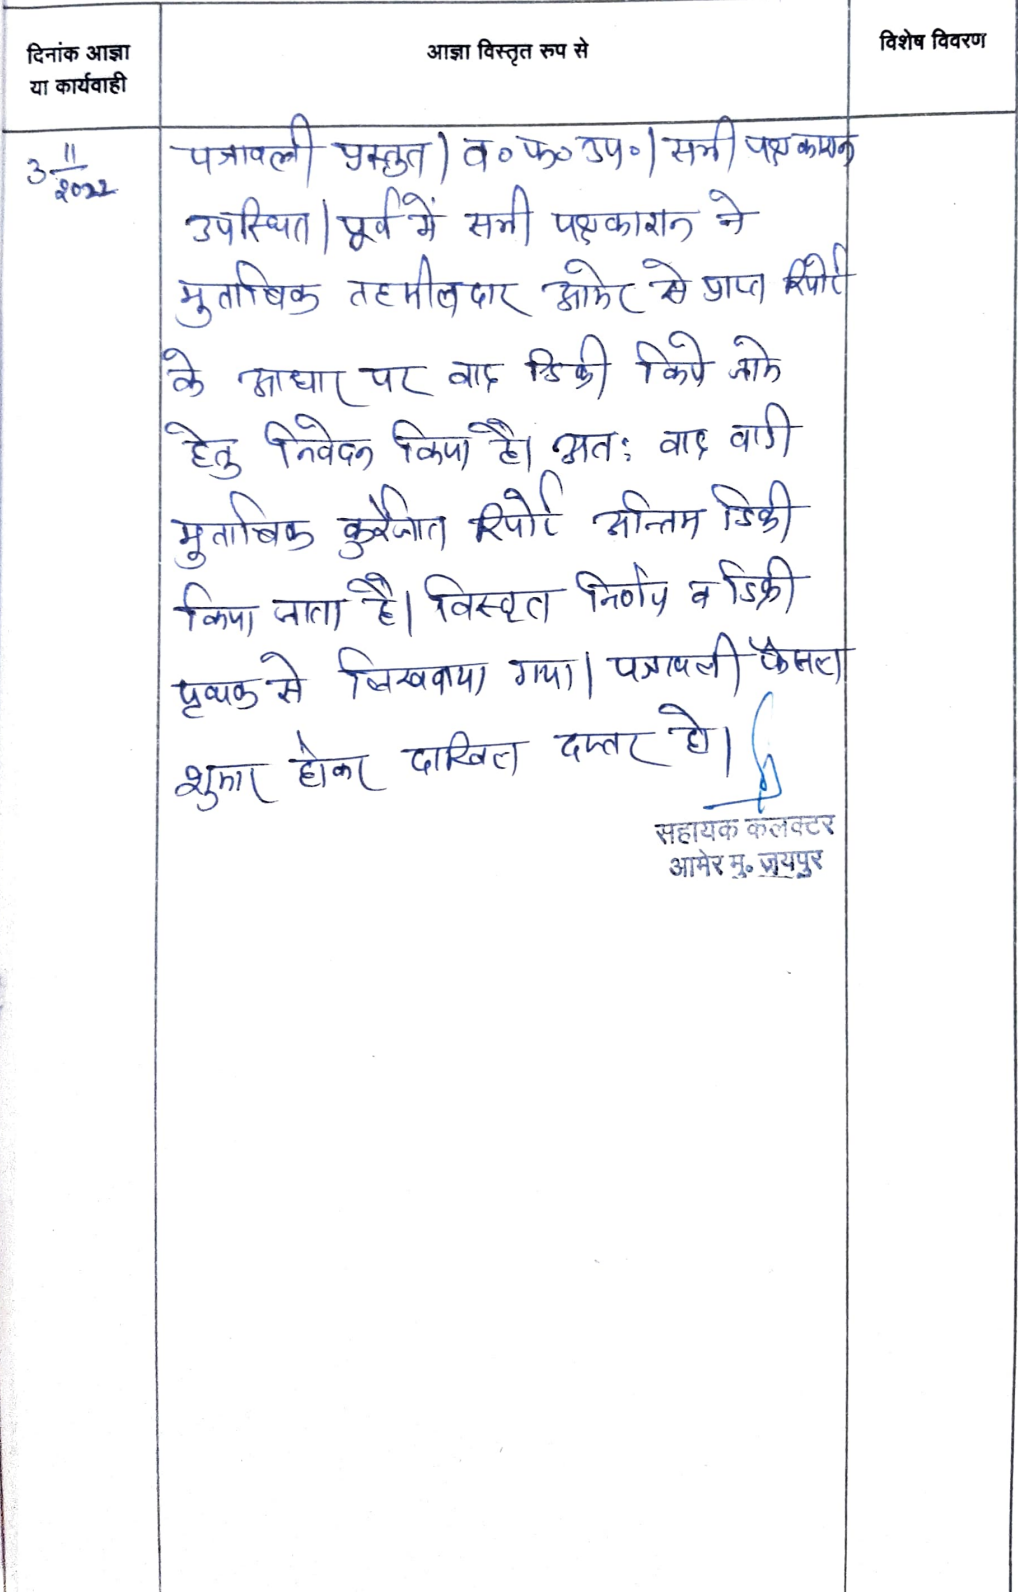 दिनांक आज्ञा
या कार्यवाही
आज्ञा विस्तृत रुप से
विशेष विवरण
3 11/2022
पत्रावली प्रस्तुत। व॰ फ॰ उप॰। सभी पक्षकारान
उपस्थित। पूर्व में सभी पक्षकारान ने
मुताबिक तहसीलदार आमेर से प्राप्त रिपोर्ट
के आधार पर वाद डिक्री किये जाने
हेतु निवेदन किया है। अतः वाद वादी
मुताबिक कुर्रेजात रिपोर्ट अन्तिम डिक्री
किया जाता है। विस्तृत निर्णय व डिक्री
पृथक से लिखवाया गया। पत्रावली फैसल
शुमार होकर दाखिल दफ्तर हो।
सहायक कलक्टर
आमेर मु॰ जयपुर